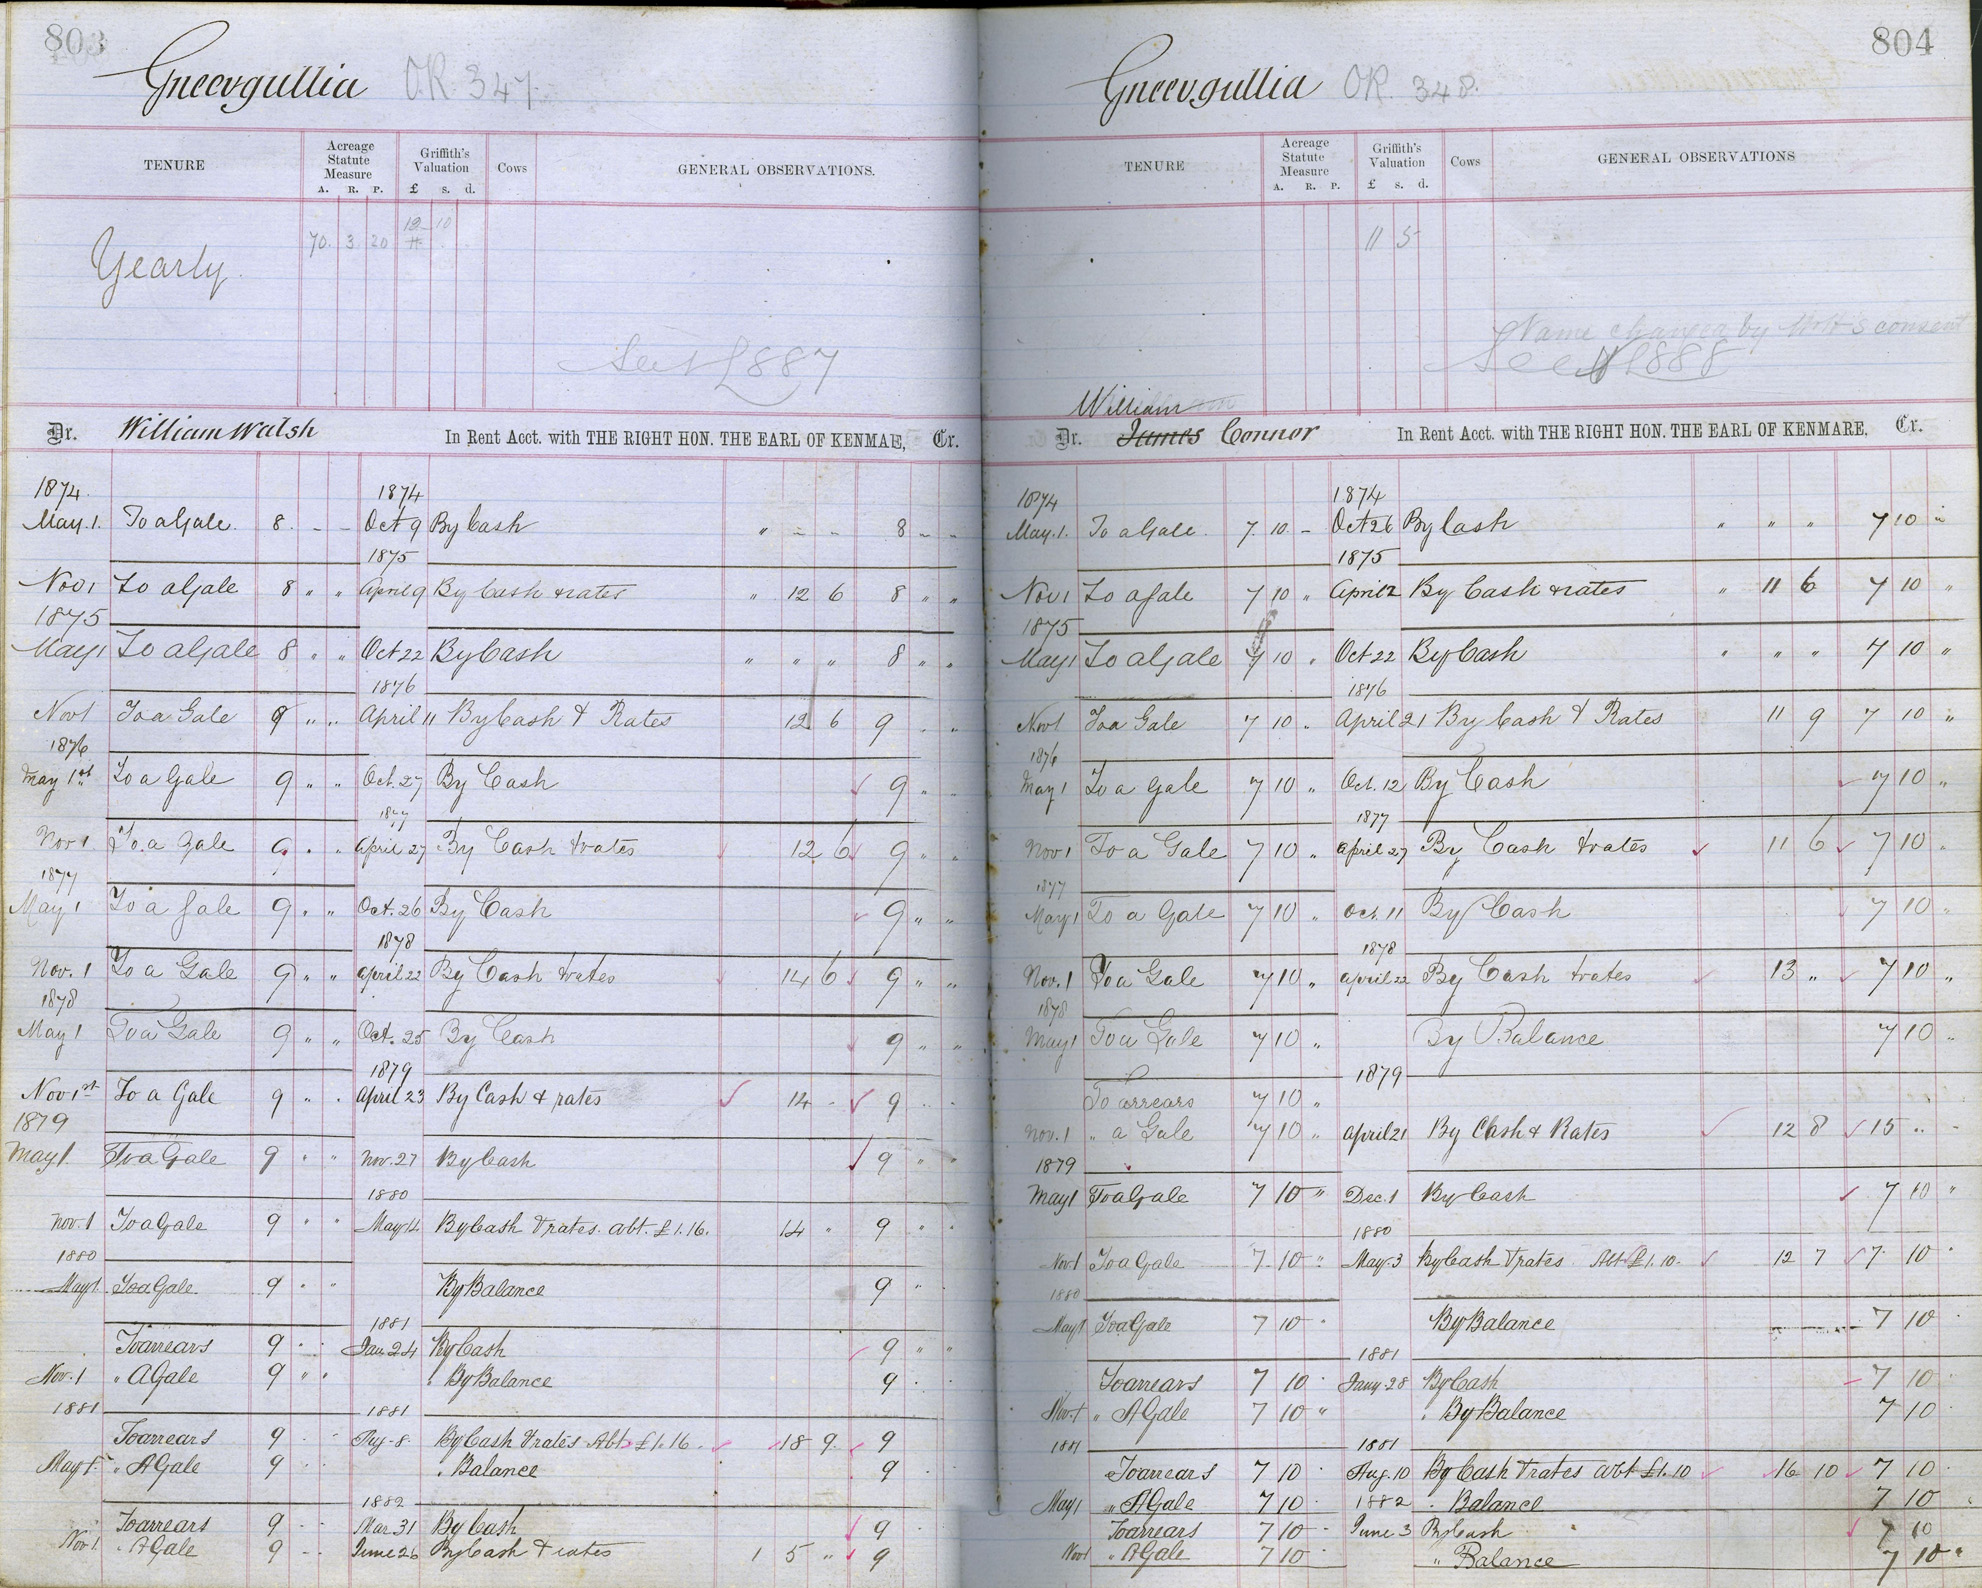 803
Gneevgullia OR 347.
TENURE
Acreage Statute Measure
A. R. P.
Griffith's Valuation
£ s. d.
Cows
GENERAL OBSERVATIONS.
Yearly.
70. 3 20 12 10
11
See L 887
Dr. William Walsh In Rent Acct. with THE RIGHT HON. THE EARL OF KENMARE, Cr.
1874. 1874
May. 1. To a Gale. 8. - - Oct 9 By Cash " - - 8 - -
1875
Nov 1 To a Gale 8 " " April 9 By Cash & rates " 12 6 8 " "
1875
May 1 To a Gale 8 " " Oct 22 By Cash " " " 8 " "
1876
Nov 1 To a Gale 9 " " April 11 By Cash & Rates 12 6 9 " "
1876
May 1st To a Gale 9 " " Oct. 27 By Cash 9 " "
1877
Nov 1 To a Gale 9 " " April 27 By Cash & rates 12 6 9 " "
1877
May 1 To a Gale 9 " " Oct. 26 By Cash 9 " "
1878
Nov. 1 To a Gale 9 " " April 22 By Cash & rates 14 6 9 " "
1878
May 1 To a Gale 9 " " Oct. 25 By Cash 9 " "
1879
Nov 1st To a Gale 9 " " April 23 By Cash & rates 14 - 9 " "
1879
May 1 To a Gale 9 " " Nov. 27 By Cash 9 " "
1880
Nov. 1 To a Gale 9 " " May 14 By Cash & rates. abt. £1.16. 14 " 9 " "
1880
May 1 To a Gale. 9 " " By Balance 9 "
1881
To arrears 9 " " Jan. 24 By Cash 9 " "
Nov. 1 " A Gale 9 " " " By Balance 9 "
1881 1881
To arrears 9 By Cash & rates Abt £1.16. 18 9. 9
May 1 " A Gale 9 " Balance 9
1882
To arrears 9 Mar 31 By Cash 9
Nov 1 " A Gale 9 June 26 By Cash & rates 1 5 " 9
804
Gneevgullia OR. 348.
TENURE
Acreage Statute Measure
A. R. P.
Griffith's Valuation
£ s. d.
Cows
GENERAL OBSERVATIONS
11 5
Name changed by consent
See L 888
William
Dr. James Connor In Rent Acct. with THE RIGHT HON. THE EARL OF KENMARE, Cr.
1874 1874
May. 1. To a Gale. 7. 10 - Oct 26 By Cash " " " 7 10 "
1875
Nov 1 To a Gale 7 10 " April 12 By Cash & rates " 11 6 7 10 "
1875
May 1 To a Gale 7 10 " Oct 22 By Cash " " " 7 10 "
1876
Nov 1 To a Gale 7 10 " April 21 By Cash & Rates 11 9 7 10 "
1876
May 1 To a Gale 7 10 " Oct. 12 By Cash 7 10 "
1877
Nov 1 To a Gale 7 10 " April 27 By Cash & rates 11 6 7 10 "
1877
May 1 To a Gale 7 10 " Oct. 11 By Cash 7 10 "
1878
Nov. 1 To a Gale 7 10 " April 22 By Cash & rates 13 " 7 10 "
1878
May 1 To a Gale 7 10 " By Balance 7 10 "
1879
To arrears 7 10 "
Nov. 1 " a Gale 7 10 " April 21 By Cash & Rates 12 8 15 " -
1879
May 1 To a Gale 7 10 " Dec. 1 By Cash 7 10 "
1880
Nov. 1 To a Gale 7. 10 " May. 3 By Cash & rates Abt £1.10. 12 7 7. 10 "
1880
May 1 To a Gale 7 10 " By Balance 7 10 "
1881
To arrears 7 10 " Jany 28 By Cash 7 10 "
Nov. 1 " A Gale 7 10 " " By Balance 7 10
1881 1881
To arrears 7 10 " Aug. 10 By Cash & rates abt £1.10 16 10 7 10
May 1 " A Gale 7 10 " 1882 " Balance 7 10
To arrears 7 10 " June 3 By Cash 7 10
Nov 1 " A Gale 7 10 " " Balance 7 10 "